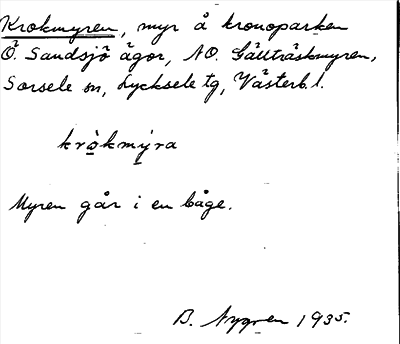 Krokmyren, myr å kronoparken
Ö. Sandsjö ägor, NO. Gällträskmyren,
Sorsele sn, Lycksele tg, Västerb. l.
kròkmýra
Myren går i en båge.
B. Nygren 1935.